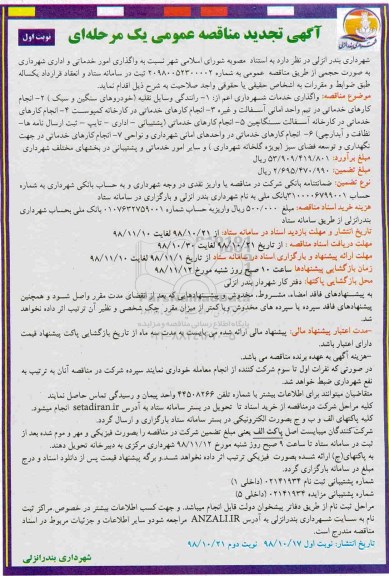 آگهی تجدید مناقصه عمومی یک مرحله‌ای
نوبت اول
شهرداری بندر انزلی در نظر دارد به استناد مصوبه شورای اسلامی شهر نسبت به واگذاری امور خدماتی و اداری شهرداری
به صورت حجمی از طریق مناقصه عمومی به شماره ۲۰۹۸۰۰۵۲۳۰۰۰۰۲ ثبت در سامانه ستاد و انعقاد قرارداد یکساله
طبق ضوابط و مقررات به اشخاص حقیقی یا حقوقی واجد صلاحیت به شرح ذیل اقدام نماید.
موضوع مناقصه: واگذاری خدمات شهرداری اعم از: ۱- رانندگی وسایل نقلیه (خودروهای سنگین و سبک) ۲- انجام
کارهای خدماتی در واحد امانی آسفالت و غیره ۳- انجام کارهای خدماتی در کارخانه کمپوست ۴- انجام کارهای
خدماتی در کارخانه آسفالت سنگاچین ۵- انجام کارهای خدماتی (پشتیبانی - اداری - تایپ - ثبت ارسال نامه ها-
نظافت و آبدارچی) ۶- انجام کارهای خدماتی در واحدهای امانی شهرداری و نواحی ۷- انجام کارهای خدماتی در جهت
نگهداری و توسعه فضای سبز (بویژه گلخانه شهرداری) و سایر امور خدماتی و پشتیبانی در بخشهای مختلف شهرداری
مبلغ برآورد: ۵۳/۹۰۹/۴۱۹/۸۰۱ ریال
مبلغ تضمین: ۲/۶۹۵/۴۷۰/۹۹۰ ریال
نوع تضمین: ضمانتنامه بانکی شرکت در مناقصه یا واریز نقدی در وجه شهرداری و به حساب بانکی شهرداری به شماره
حساب ۳۱۰۰۰۰۶۷۹۹۰۰۱ بانک ملی به نام شهرداری بندر انزلی و بارگزاری در سامانه ستاد
هزینه خرید اسناد مناقصه: مبلغ ۵۰۰/۰۰۰ ریال واریز به حساب شماره ۰۱۰۷۶۳۲۷۵۹۰۰۱ بانک ملی بحساب شهرداری
بندرانزلی از طریق سامانه ستاد
تاریخ انتشار و مهلت بازدید اسناد در سامانه ستاد: از ۹۸/۱۰/۲۱ لغایت ۹۸/۱۱/۱۰
مهلت دریافت اسناد مناقصه: از تاریخ ۹۸/۱۰/۲۱ لغایت ۹۸/۱۰/۳۰
مهلت ارائه پیشنهاد و بارگزاری اسناد در سامانه ستاد از تاریخ ۹۸/۱۱/۱ لغایت تاریخ ۹۸/۱۱/۱۰
زمان بازگشایی پیشنهادها ساعت ۱۰ صبح روز شنبه مورخ ۹۸/۱۱/۱۲
محل بازگشایی پاکتها: دفتر کار شهردار بندر انزلی
به پیشنهادهای فاقد امضاء، مشروط، مخدوش و پیشنهادهایی که بعد از انقضای مدت مقرر واصل شود و همچنین
پیشنهادهای فاقد سپرده یا سپرده های مخدوش و یا کمتر از میزان مقرر چک شخصی و نظیر آن ترتیب اثر داده نخواهد
شد.
-مدت اعتبار پیشنهاد مالی: پیشنهاد مالی ارائه شده می بایست به مدت سه ماه از تاریخ بازگشایی پاکت پیشنهاد قیمت
دارای اعتبار باشد.
-هزینه آگهی به عهده برنده مناقصه می باشد.
در صورتی که نفرات اول تا سوم شرکت کننده از انجام معامله خودداری نمایند سپرده شرکت در مناقصه آنان به ترتیب به
نفع شهرداری ضبط خواهد شد.
متقاضیان میتوانند برای اطلاعات بیشتر با شماره تلفن ۴۴۵۰۸۲۶۶ واحد پیمان و رسیدگی تماس حاصل نمایند
کلیه مراحل شرکت درمناقصه از خرید اسناد تا تحویل در بستر سامانه ستاد به آدرس setadiran.ir انجام میشود.
کلیه پاکتهای الف و ب و ج بصورت الکترونیکی در بستر سامانه ستاد بارگزاری و ارسال گردد.
شرکت‌کنندگان میبایست اصل پاکت الف یعنی مبلغ تضمین شرکت در مناقصه را بصورت فیزیکی و مهر و موم شده بعد از
ثبت در سامانه ستاد تا ساعت ۹ صبح روز شنبه مورخ ۹۸/۱۱/۱۲ شهرداری مرکزی به دبیرخانه تحویل دهند.
به پاکتهای(ج) ارائه شده بصورت فیزیکی ترتیب اثر داده نخواهد شد و برگه پیشنهاد قیمت پس از دانلود اسناد و درج
مبلغ در سامانه بارگزاری گردد.
شماره پشتیبانی ثبت نام ۰۲۱۴۱۹۳۴ (داخلی ۱)
شماره پشتیبانی مزایده ۰۲۱۴۱۹۳۴ (داخلی ۵)
مراحل ثبت نام از طریق دفاتر پیشخوان دولت قابل انجام میباشد. و جهت کسب اطلاعات بیشتر در خصوص مراکز ثبت
نام به سایت شهرداری بندرانزلی به آدرس ANZALI.IR مراجعه شود و سایر اطلاعات و جزئیات مربوط در اسناد
مناقصه مندرج است.
تاریخ انتشار: نوبت اول ۹۸/۱۰/۱۷ نوبت دوم ۹۸/۱۰/۲۱
شهرداری بندرانزلی